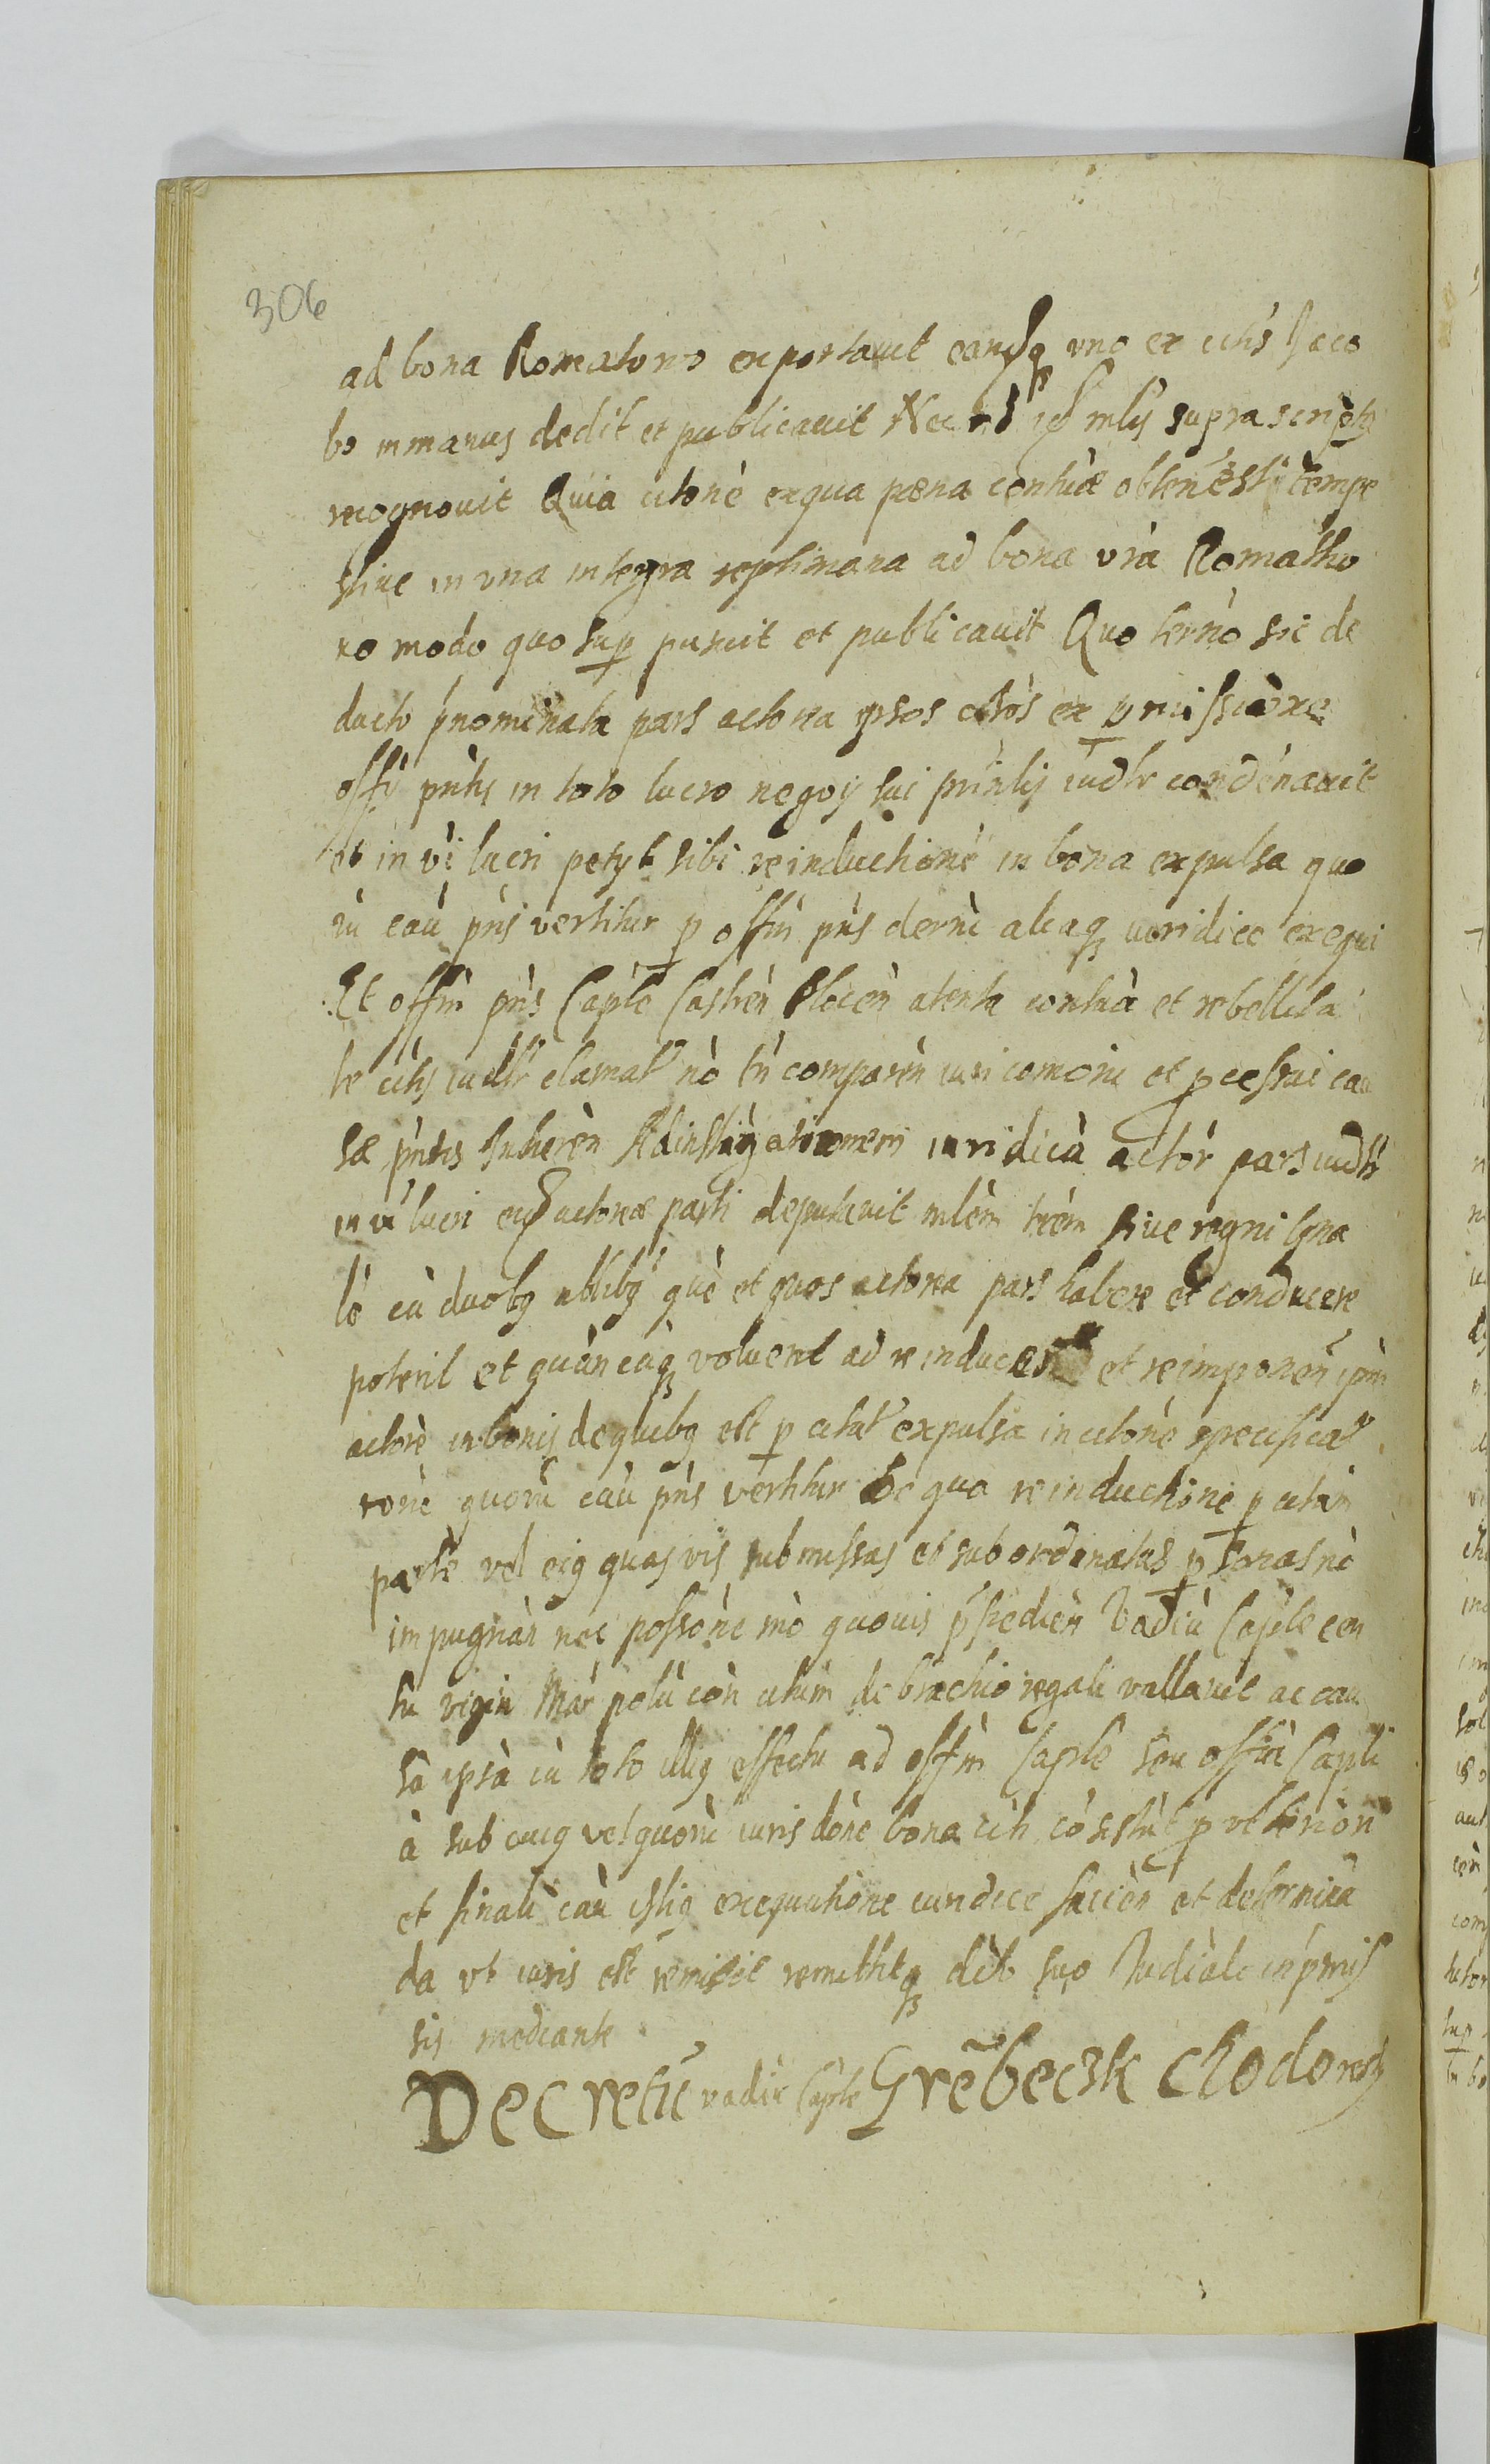 306
ad bona Romatowo exportavit eandq uno ex citis Jaco
bo in manus dedit et publicavit Nec id mlis suprascripts
recognovit Quia citone ex qua pœna contuæ obten est tempe
stive in una integra septimana ad bona vra Romatho
wo modo quo sup posuit et publicavit Quo termo sic de
ducto pnominata pars actorea ipsos citos ex pmissione
offy pntis in toto lucro negoy sui prinlis iudlr condenavit
et in vi lucri petyt sibi reinductione in bona expulsa quo
ru cau pns vertitur p offm pns decrni aliaq iuridice exequi
Et offm pns Caple Castren Plocen atenta contua et rebellita
te citis iudlr clamat no tn comparen iuri comoni et pcessui cau
sæ pntis Inheren Adinstigationem iuridica actor pars iudlr
in vi lucri eid actoreæ parti deputavit mlem trem sive regni gna
le cu duobq nblibq que et quos actorea pars habere et conducere
poterit et quancuq voluerit ad reinducen et reimponen ipm
actore in bonis de quibq est p citat expulsa in citone specificat
rone quoru cau pns vertitur De qua reinductione p citam
parte vel eiq quasvis submissas et subordinatas psonas no
impugnar nec possone mo quovis pstedien Vadiu Caple cen
tu vigin Mar polu con citum de brachio regali vallavit ac cau
sa ipsa cu toto illiq effectu ad offm Caple seu offia Capli
a sub cuiq vel quoru iurisdone bona citi consistut p ulterion
et finali cau istiq exequutione iuridice facien et determina
da ut iuris est remisit remittitq dcto suo Judiali in pmis
sis mediante
Decretu vadii Caple Grebeczk Chodowsky